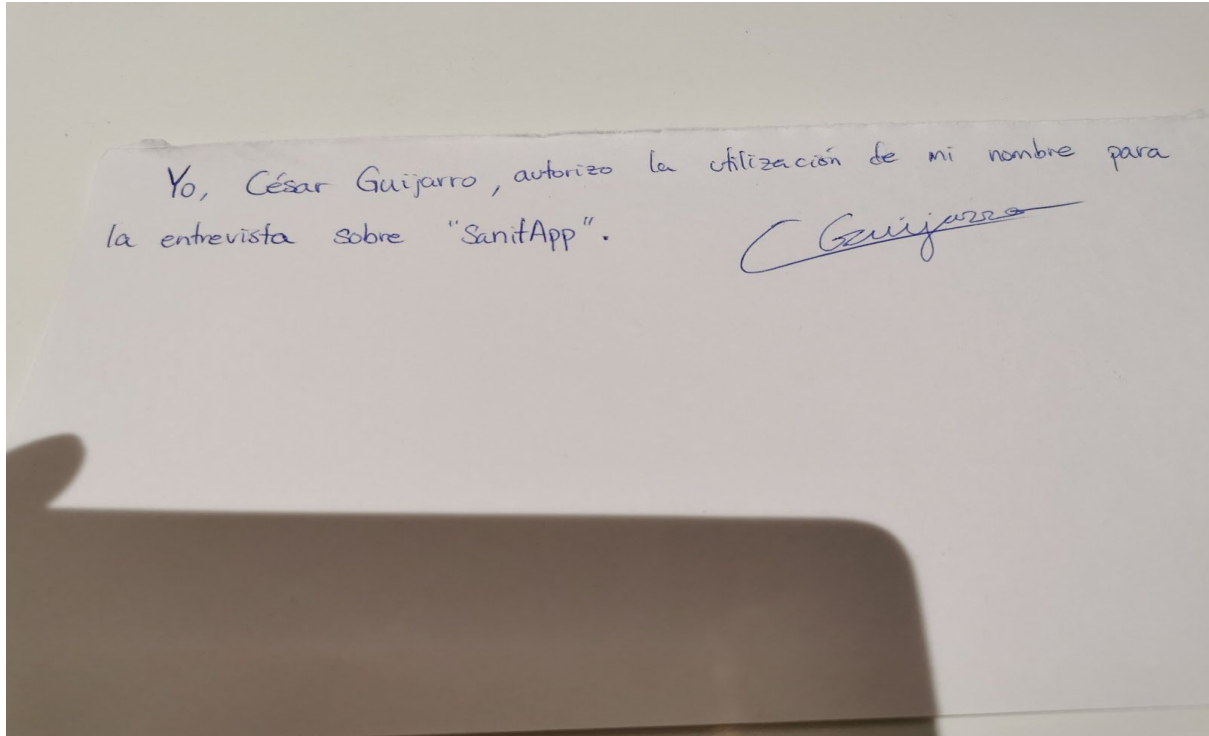 Yo, César Guijarro, autorizo la utilización de mi nombre para
la entrevista sobre "SanitApp".
C Guijarro